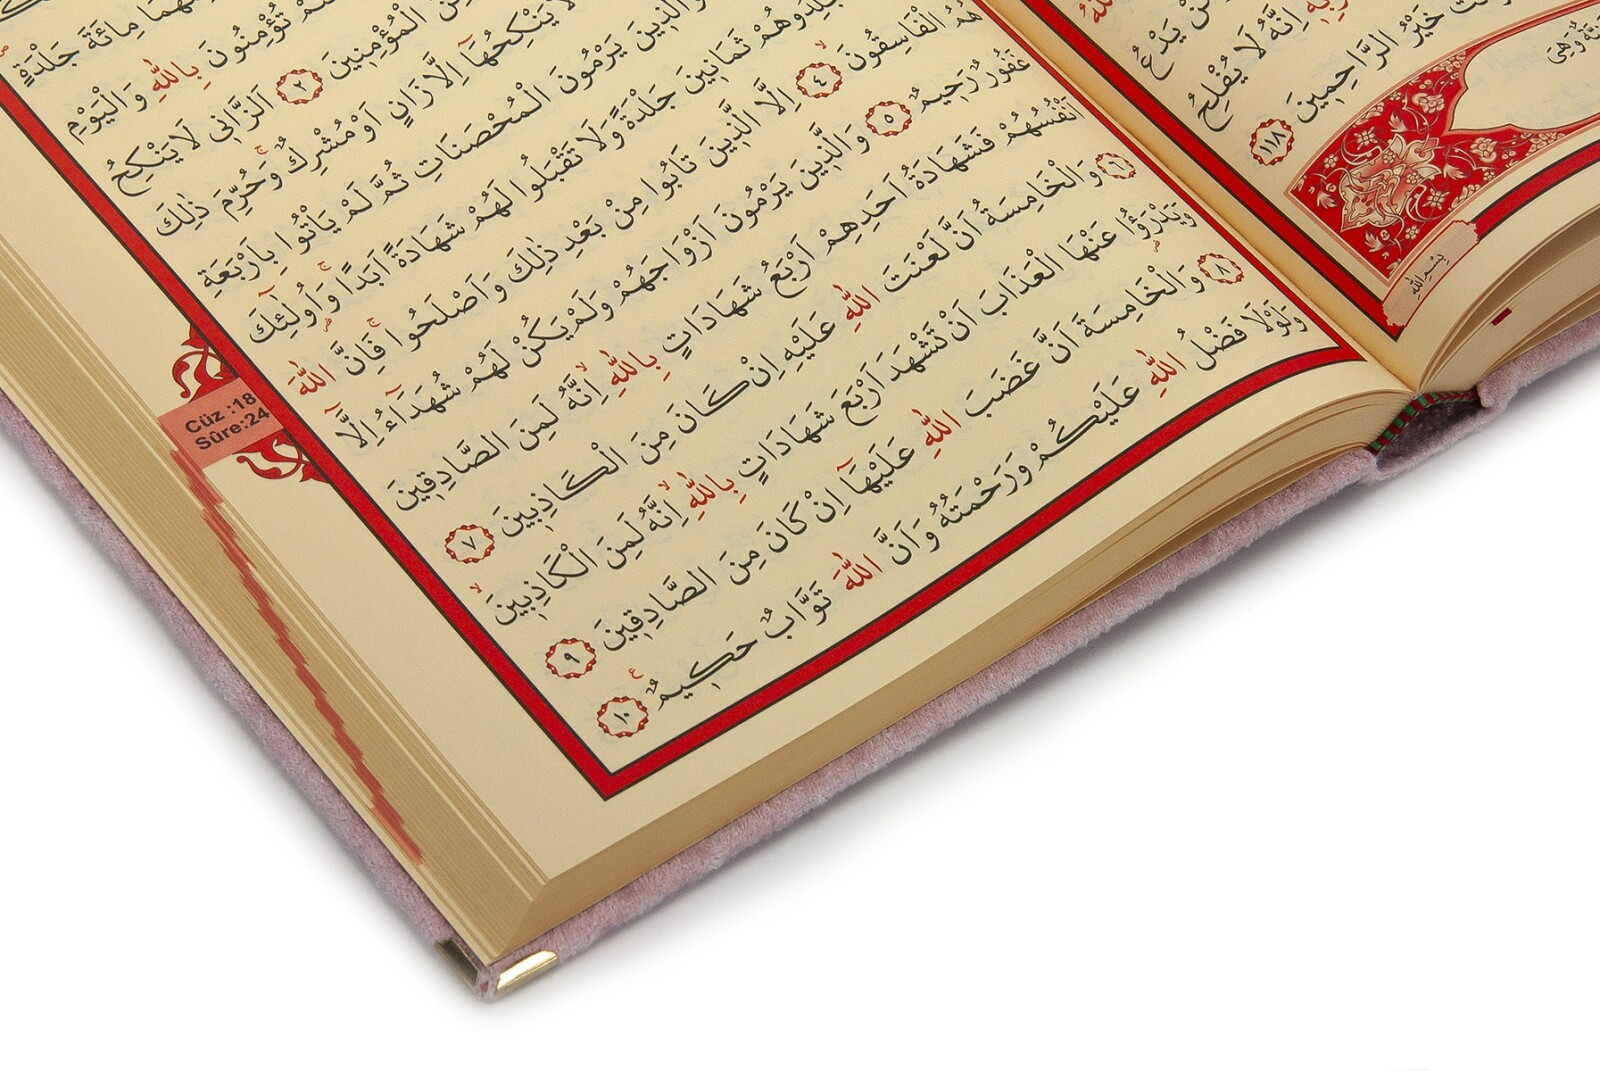 نْ يَدْعُ
بِهِ اِنَّهُ لَا يُفْلِحُ
خَيْرُ الرَّاحِمِينَ ﴿١١٨﴾
بِسْمِ اللّٰهِ
مِائَةَ جَلْدَةٍ
تُؤْمِنُونَ بِاللّٰهِ وَالْيَوْمِ
الْمُؤْمِنِينَ ﴿٢﴾ اَلزَّانِى لَا يَنْكِحُ
لَا يَنْكِحُهَٓا اِلَّا زَانٍ اَوْ مُشْرِكٌ وَحُرِّمَ ذٰلِكَ
وَالَّذِينَ يَرْمُونَ الْمُحْصَنَاتِ ثُمَّ لَمْ يَأْتُوا بِاَرْبَعَةِ
ثَمَانِينَ جَلْدَةً وَلَا تَقْبَلُوا لَهُمْ شَهَادَةً اَبَدًا وَاُولٰٓئِكَ
هُمُ الْفَاسِقُونَ ﴿٤﴾ اِلَّا الَّذِينَ تَابُوا مِنْ بَعْدِ ذٰلِكَ وَاَصْلَحُوا فَاِنَّ اللّٰهَ
غَفُورٌ رَحِيمٌ ﴿٥﴾ وَالَّذِينَ يَرْمُونَ اَزْوَاجَهُمْ وَلَمْ يَكُنْ لَهُمْ شُهَدَٓاءُ اِلَّٓا
اَنْفُسُهُمْ فَشَهَادَةُ اَحَدِهِمْ اَرْبَعُ شَهَادَاتٍ بِاللّٰهِ اِنَّهُ لَمِنَ الصَّادِقِينَ
﴿٦﴾ وَالْخَامِسَةُ اَنَّ لَعْنَتَ اللّٰهِ عَلَيْهِ اِنْ كَانَ مِنَ الْكَاذِبِينَ ﴿٧﴾
وَيَدْرَؤُا عَنْهَا الْعَذَابَ اَنْ تَشْهَدَ اَرْبَعَ شَهَادَاتٍ بِاللّٰهِ اِنَّهُ لَمِنَ الْكَاذِبِينَ
﴿٨﴾ وَالْخَامِسَةَ اَنَّ غَضَبَ اللّٰهِ عَلَيْهَٓا اِنْ كَانَ مِنَ الصَّادِقِينَ ﴿٩﴾
وَلَوْلَا فَضْلُ اللّٰهِ عَلَيْكُمْ وَرَحْمَتُهُ وَاَنَّ اللّٰهَ تَوَّابٌ حَكِيمٌ ﴿١٠﴾
Cüz :18
Sûre:24